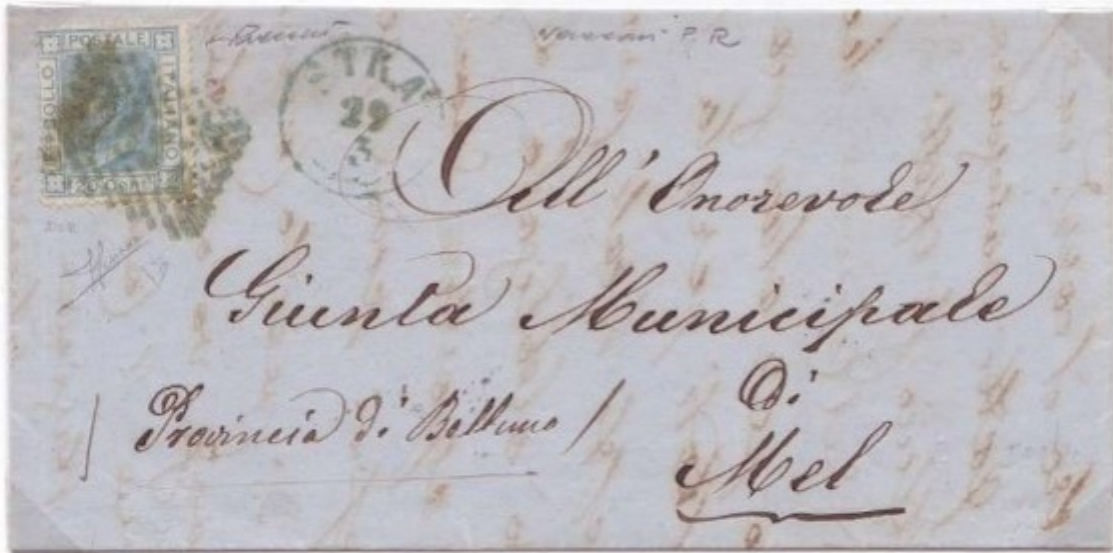 POSTALE
BOLLO
ITALIANO
20 CENT
STRA
29
5
Vaccari P. R
All' Onorevole
Giunta Municipale
di
Mel
/ Provincia di Belluno /